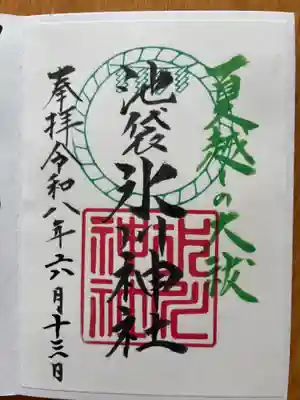 夏越しの大祓
池袋氷川神社
奉拝令和八年六月十三日
氷川
神社